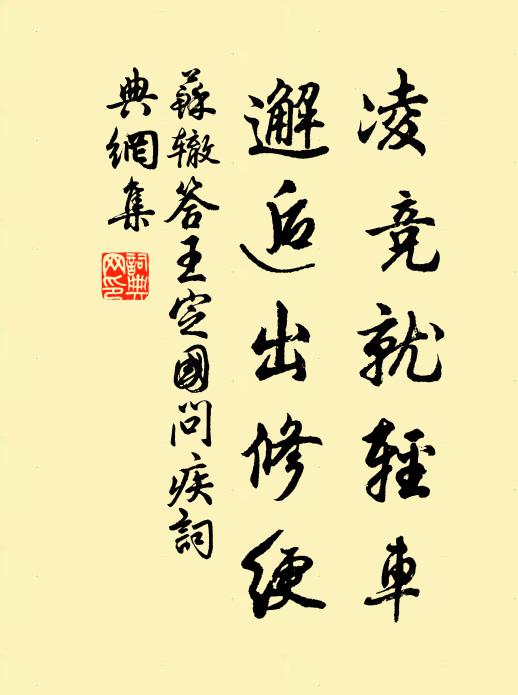 凌竞就輕車
邂逅出修绠
蘇辙答王定國問疾詞
典網集
詞典网印